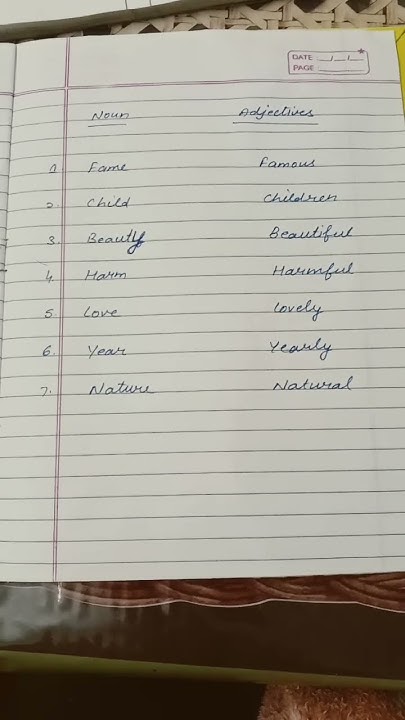 DATE __/__/__
PAGE ______
Noun Adjectives
1. Fame Famous
2. Child Children
3. Beauty Beautiful
4. Harm Harmful
5. Love Lovely
6. Year Yearly
7. Nature Natural